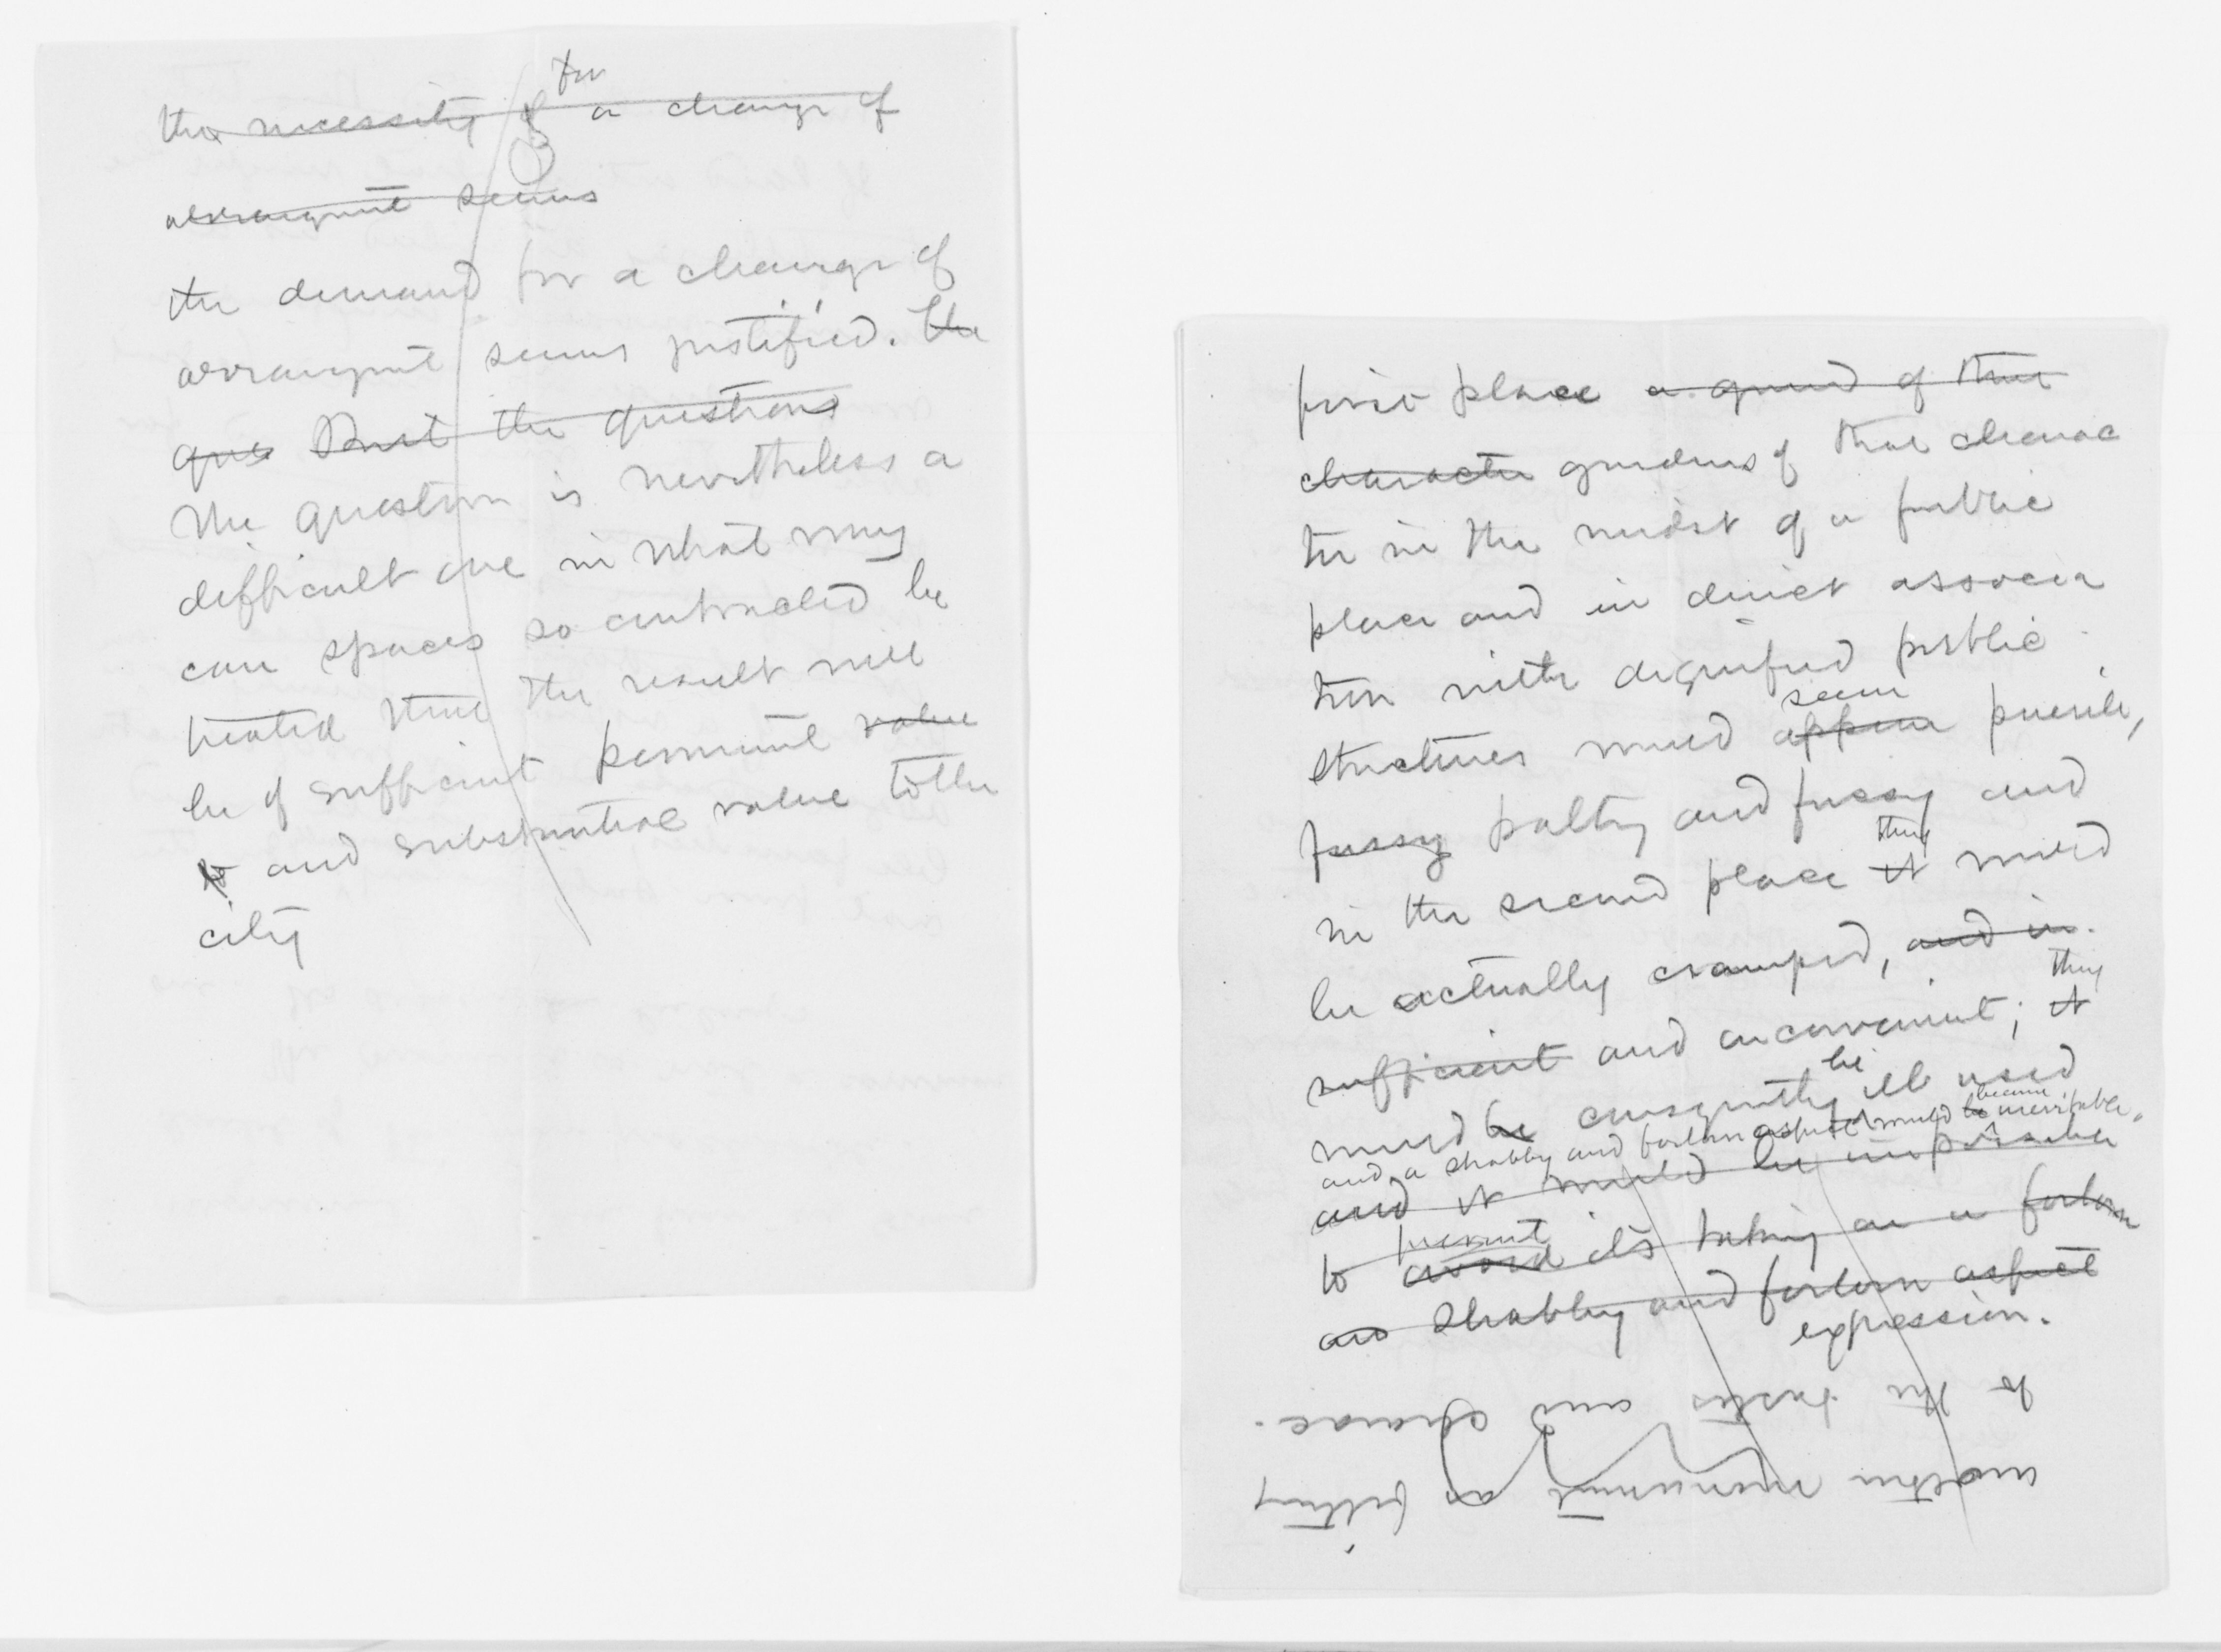 for
the necessity of a change of
arrangment seems
the demand for a change of
arrangmnt seems justified. the
ques But the questions
The question is nevertheless a
difficult one in what way
can spaces so contracted be
treated that the result will
be of sufficient permanent value
to and substantial value to the
city
first place a ground of that
character gardens of that charac
ter in the midst of a public
place and in direct associa
tion with dignified public
seem
structures would appear puerile,
fussy paltry and fussy and
they
in the second place it would
be actually cramped, and in
they
sufficient and inconvenient; it
be
would be consequently ill used
became
and a shabby and forlorn aspect would be inevitable.
and it would be impossible
prevent
to avoid its taking on a forlorn
and shabby and forlorn aspect
expression.
modern monument as fitting
to the tastes and